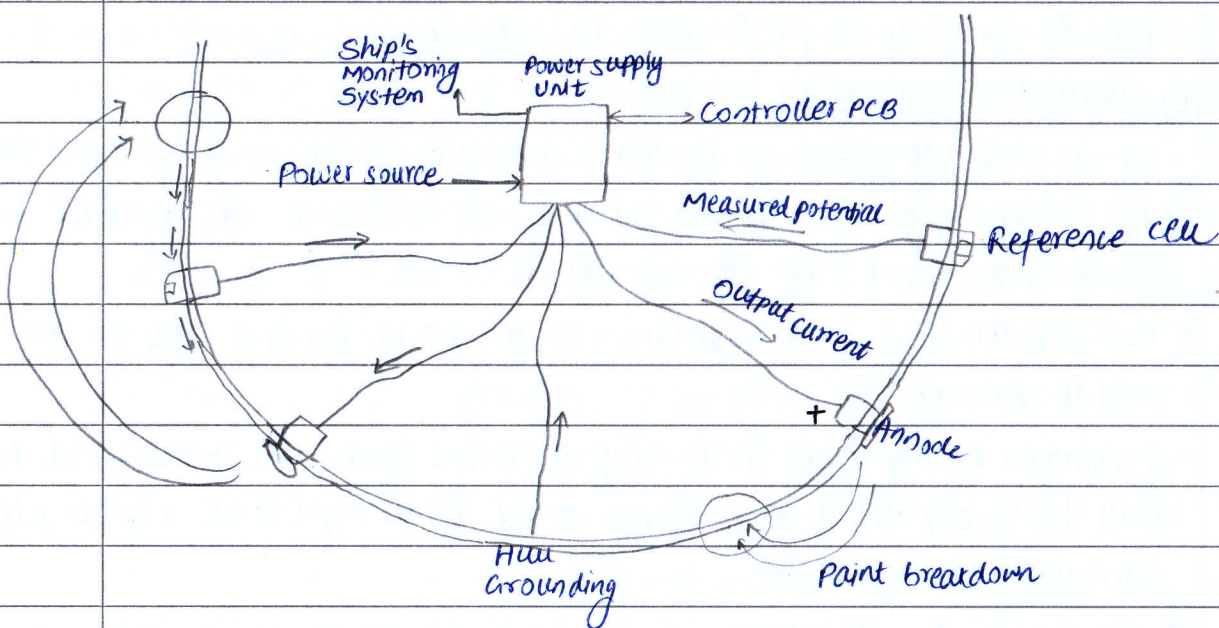 Ship's
Monitoring
System
Power supply
Unit
Controller PCB
Power source
Measured potential
Reference cell
Output current
+
Annode
Hull
Grounding
Paint breakdown